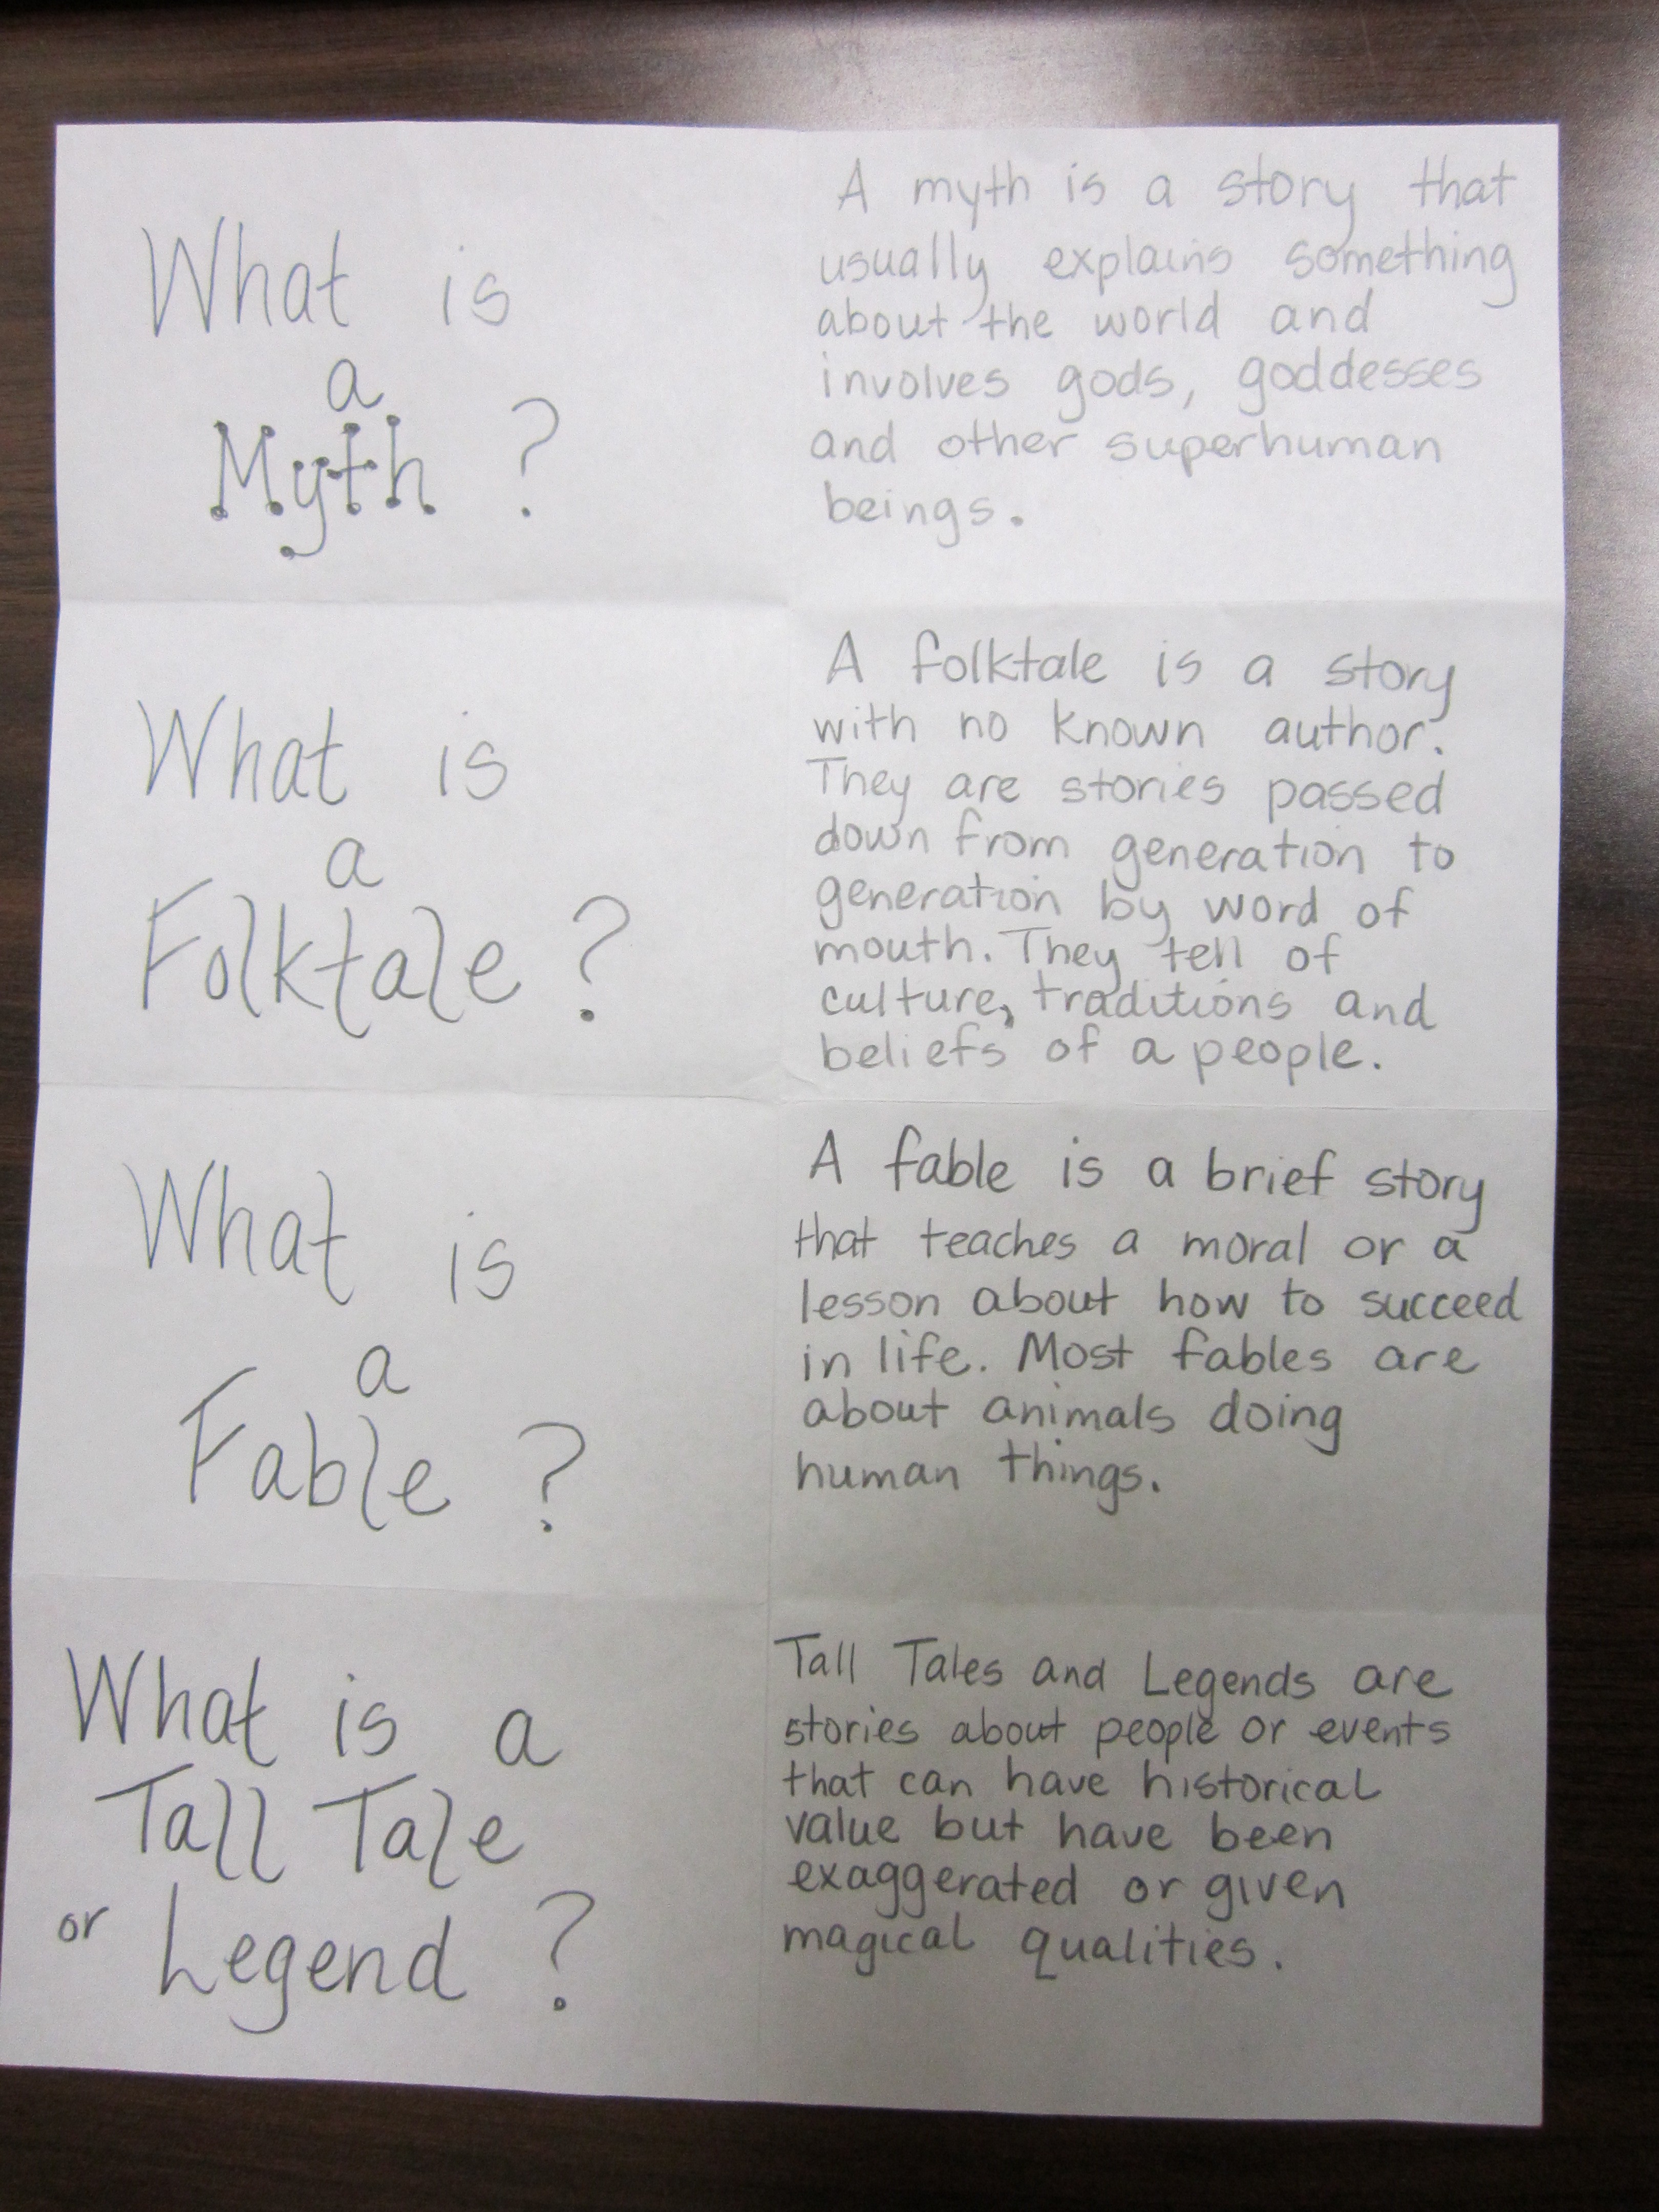 What is
a
Myth ?
A myth is a story that
usually explains something
about the world and
involves gods, goddesses
and other superhuman
beings.
What is
a
Folktale ?
A folktale is a story
with no known author.
They are stories passed
down from generation to
generation by word of
mouth. They tell of
culture, traditions and
beliefs of a people.
What is
a
Fable ?
A fable is a brief story
that teaches a moral or a
lesson about how to succeed
in life. Most fables are
about animals doing
human things.
What is a
Tall Tale
or Legend ?
Tall Tales and Legends are
stories about people or events
that can have historical
value but have been
exaggerated or given
magical qualities.